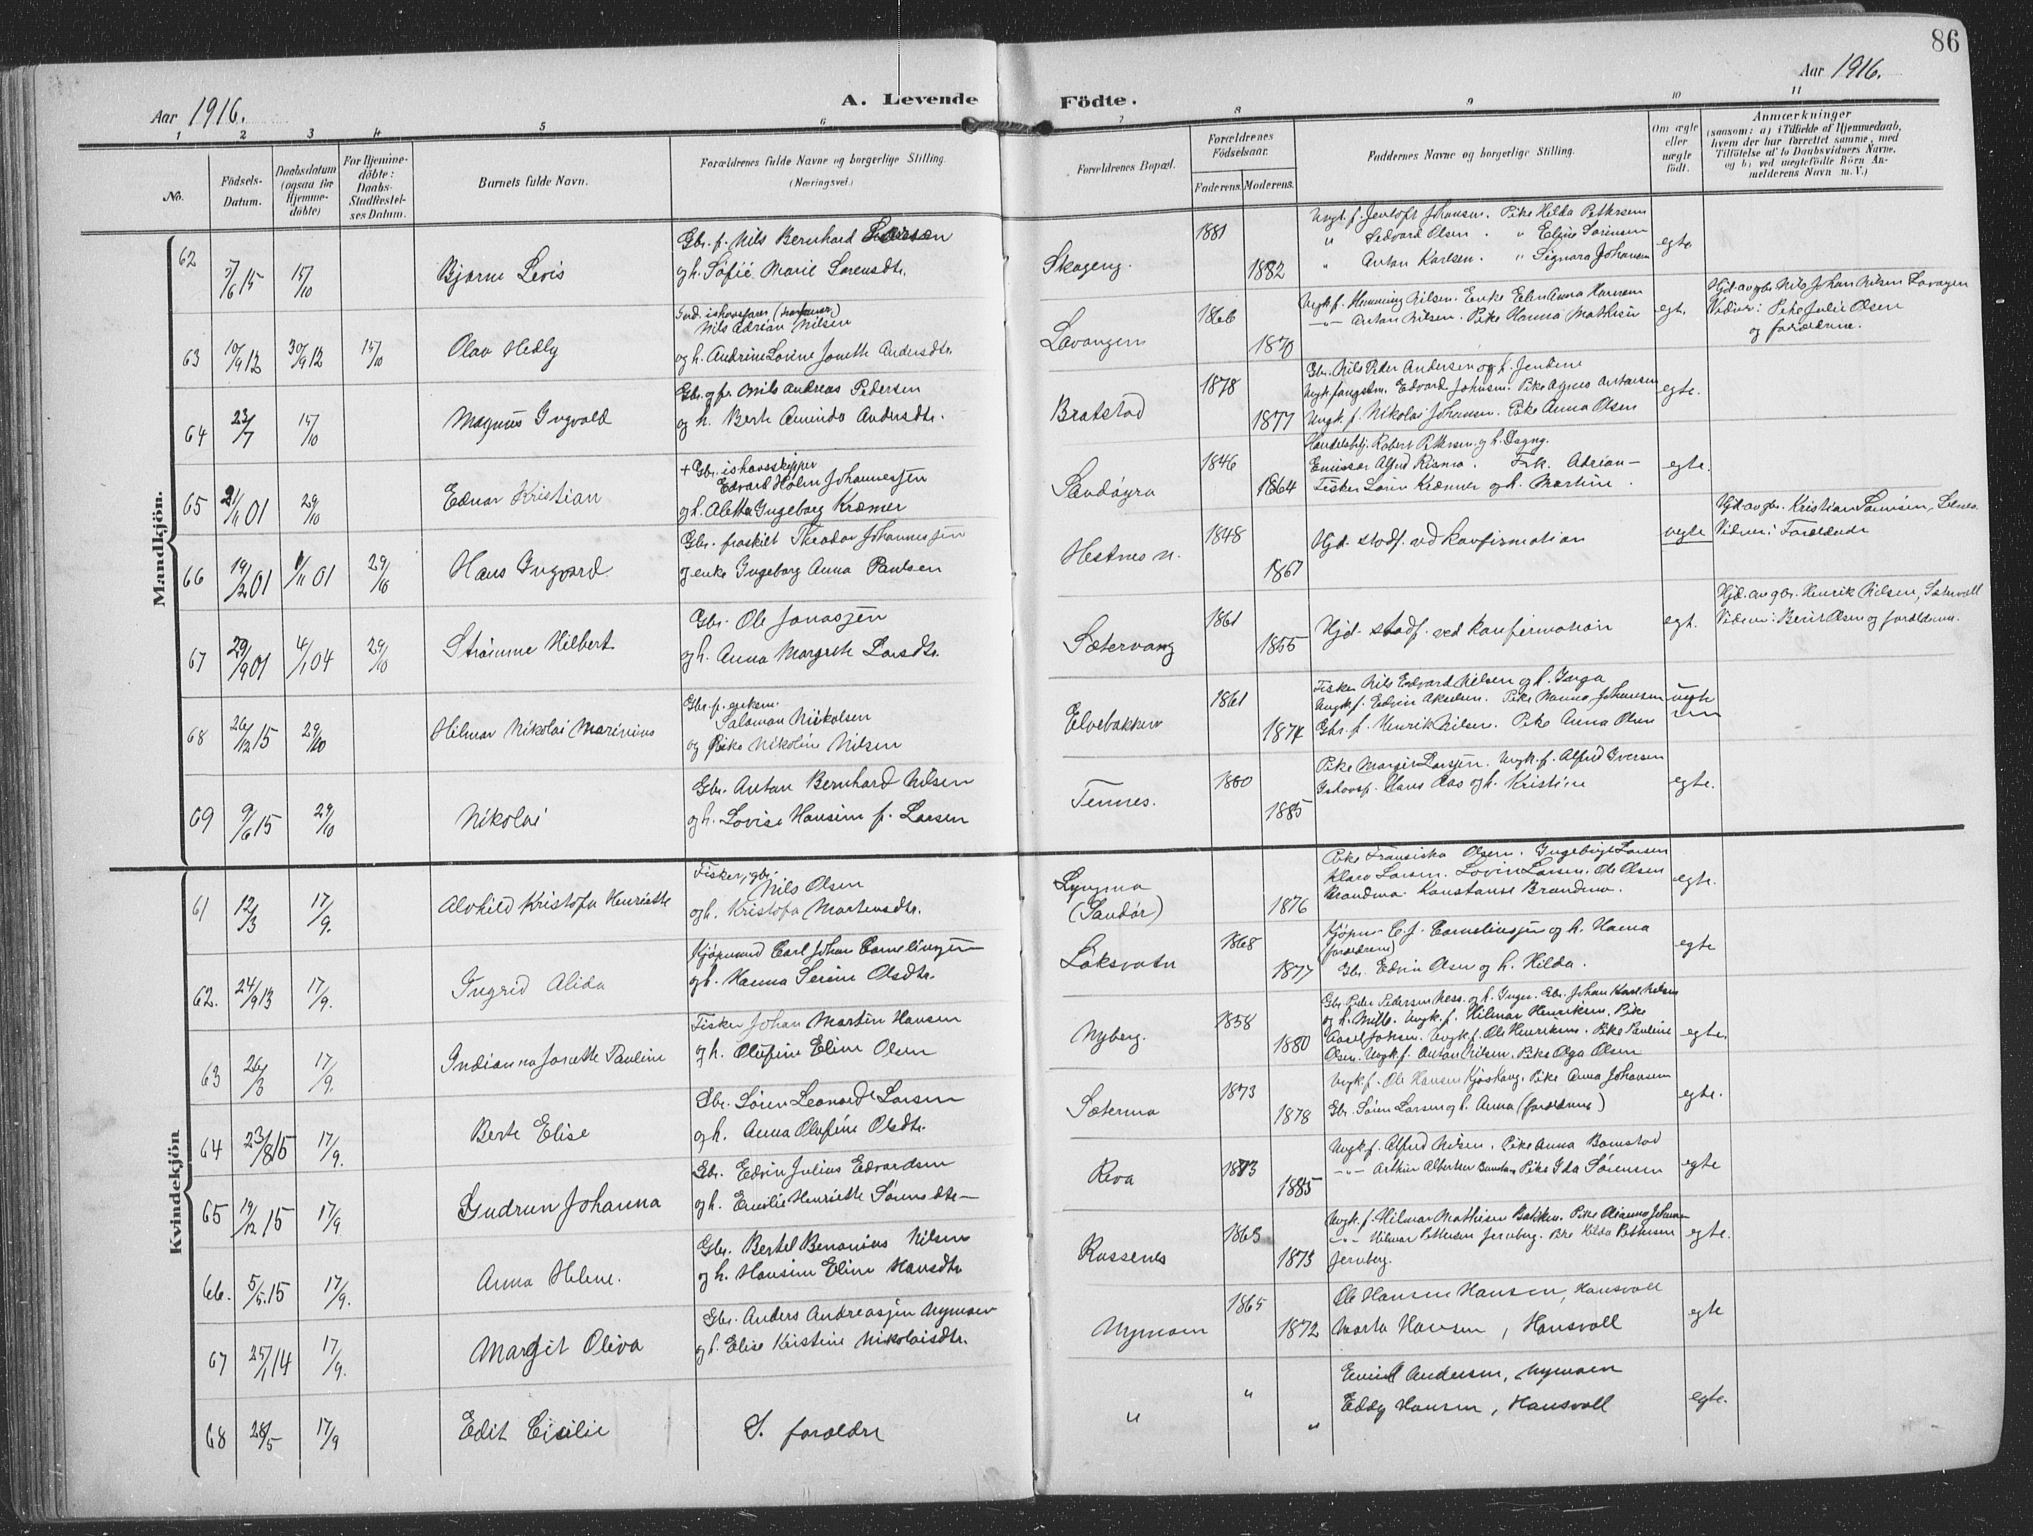 86
Aar 1916.
A. Levende
Födte.
Aar 1916.
1 2 3 4 5 6 7 8 9 10 11
No.
Födsels-
Datum.
Daabsdatum
(ogsaa for
Hjemme-
döbte)
For Hjemme-
döbte:
Daabs-
Stadfæstel-
ses Datum.
Barnets fulde Navn.
Forældrenes fulde Navne og borgerlige Stilling.
(Næringsvei.)
Forældrenes Bopæl.
Forældrenes
Födselsaar.
Faderens. Moderens.
Faddernes Navne og borgerlige Stilling.
Om ægte
eller
uægte
födt.
Anmærkninger
(saasom: a) i Tilfælde af Hjemmedaab,
hvem der har forrettet samme, med
Tilföielse af to Daabsvidners Navne.
og b) ved uegtefödte Börn An-
melderens Navn m. V.)
Mandkjön.
62 15 15/10 Bjarne Levis
Gbr. f. Nils Bernhard Larsen
og h. Sofie Marie Sorensdtr.
Skogeng. 1881 1882
Ungk. f. Jentoft Johansen. Pike Hilda Pettersen
" Sedvard Olsen. " Eline Sorensen
" Anton Karlsen. " Signora Johansen
egte
63 10/9 12 30/9 12 15/10 Olav Hedly
Nils Adrian Nilsen
og h. Andrine Lovine Jonette Andersdtr.
Lavangen 1866 1870
Ungk. f. Henning Nilsen. Enke Elen Anna Hansen
-"- Anton Nilsen. Pike Hanna Mathisen
egt.
Hjd. av gbr. Nils Johan Nilsen Lavangen
Vidner: Pike Julie Olsen
og forældrene.
64 23/7 15/10 Magnus Ingvald
Gbr. og f. Nils Andreas Pedersen
og h. Berte Aminda Andersdtr.
Bratstad 1878 1877
Gbr. Nils Peder Andersen og h. Jendine
Ungk. fangstm. Edvard Johnsen. Pike Agnes Antonsen
Ungk. f. Nikolai Johansen. Pike Anna Olsen
egte.
65 21/11 01 29/10 Ednar Kristian
+ Gbr. ishavsskipper
Edvard Holm Johannessen
og h. Aletta Ingeborg Kræmer
Sandöyra 1846 1864
Handelsbtj. Robert Pettersen og h. Dagny.
Emissær Alfred Rismo. Frk. Adrian-
Fisker Sören Kræmer og h. Martine.
egte.
66 19/2 01 11 01 29/10 Hans Ingvard
Gbr. fraskilt Theodor Johannessen
og enke Ingeborg Anna Paulsen
Hestnes n. 1848 1867
Hjd. stadf. ved konfirmation
uegte
Hjd. av gbr. Kristian Sörensen,
Vidner: Forældrene
67 29/9 01 1 04 29/10 Strömme Hilbert
Gbr. Ole Jonassen
og h. Anna Margrete Larsdtr.
Sætervang 1861 1855
Hjd. stadf. ved konfirmation
egt.
Hjd. av gbr. Henrik Nilsen, Sætervoll
Vidner: Berit Olsen og forældrene.
68 26/12 15 29/10 Hilmar Nikolai Marinius
Gbr. f. enkem.
Salamon Nikolsen
og Pike Nikoline Nilsen
Elvebakken 1861 1874
Fisker Nils Edvard Nilsen og h. Inga
Ungk. f. Edvin Akselsen. Pike Hanna Johansen
Gbr. f. Henrik Nilsen. Pike Anna Olsen
uegte
69 9/6 15 29/10 Nikolai
Gbr. Anton Bernhard Nilsen
og h. Lovise Hansine f. Larsen
Tennes. 1880 1885
Pike Margit Larsen. Ungk. f. Alfred Iversen
Ishavsf. Hans Aas og h. Kristine
egte.
Kvindekjön
61 12/3 17/9. Alvhild Kristofa Henriette
Fisker, gbr.
Nils Olsen
og h. Kristofa Martensdtr.
Lyngmo
(Sandör) 1876
Pike Fransiska Olsen. Ingeborg Larsen
Klara Larsen. Lovise Larsen. Ole Olsen
Brandmo. Konstanse Brandmo.
egte.
62. 24/9 13 17/9. Ingrid Alida
Kjöpmand Carl Johan Corneliussen
og h. Hanna Serine Olsdtr.
Löksvatn 1868 1877
Kjöpm. C. J. Corneliussen og h. Hanna
(forældrene)
Gbr. Edvin Olsen og h. Hilda.
egte
63 26/3 17/9. Indianna Jonette Pauline
Fisker Johan Martin Hansen
og h. Olufine Eline Olsen
Nyberg. 1858 1880
Gbr. Peder Pedersen Ness. og h. Inger. Gbr. Johan Karl Nilsen
og h. Mille. Ungk. f. Hilmar Henriksen. Pike
Aasel Johnsen. Ungk. f. Ole Henriksen. Pike Pauline
Olsen. Ungk. f. Anton Nilsen. Pike Olga Olsen
egte.
64 23/8 15 17/9. Berte Elise
Gbr. Sören Leonard Larsen
og h. Anna Olufine Olsdtr.
Sætermo 1873 1878
Ungk. f. Ole Hansen Kjoshaug. Pike Anna Johansen
Gbr. Sören Larsen og h. Anna (forældrene)
egte.
65 19/12 15 17/9 Gudrun Johanna
Gbr. Edvin Julius Edvardsen
og h. Emilie Henriette Sörensdtr-
Reva 1883 1885
Ungk. f. Alfred Nilsen. Pike Anna Bomstad
-"- Arthur Albertsen Pike Ida Sörensen
egte
66. 5/5. 15 17/9. Anna Helene.
Gbr. Bertel Benonius Nilsen
og h. Hansine Eline Hansdtr.
Rossenes 1863 1873
Ungk. f. Hilmar Mathisen Bakken. Pike Olianna Johnsen
-"- Hilmar Pettersen Jernberg. Pike Hilda Pettersen
Jernberg.
egte.
67 25/1 14 17/9. Margit Oliva
Gbr. Anders Andreassen Nymoen
og h. Elise Kristine Nikolaisdtr.
Nymoen 1865 1872
Ole Hansen Hansen, Hansvoll
Marta Hansen, Hansvoll
egte
68 28/5 17/9 Edit Cisilie
S. foroldre
" " "
Emil Andersen, Nymoen
Eddy Hansen, Hansvoll
egte.